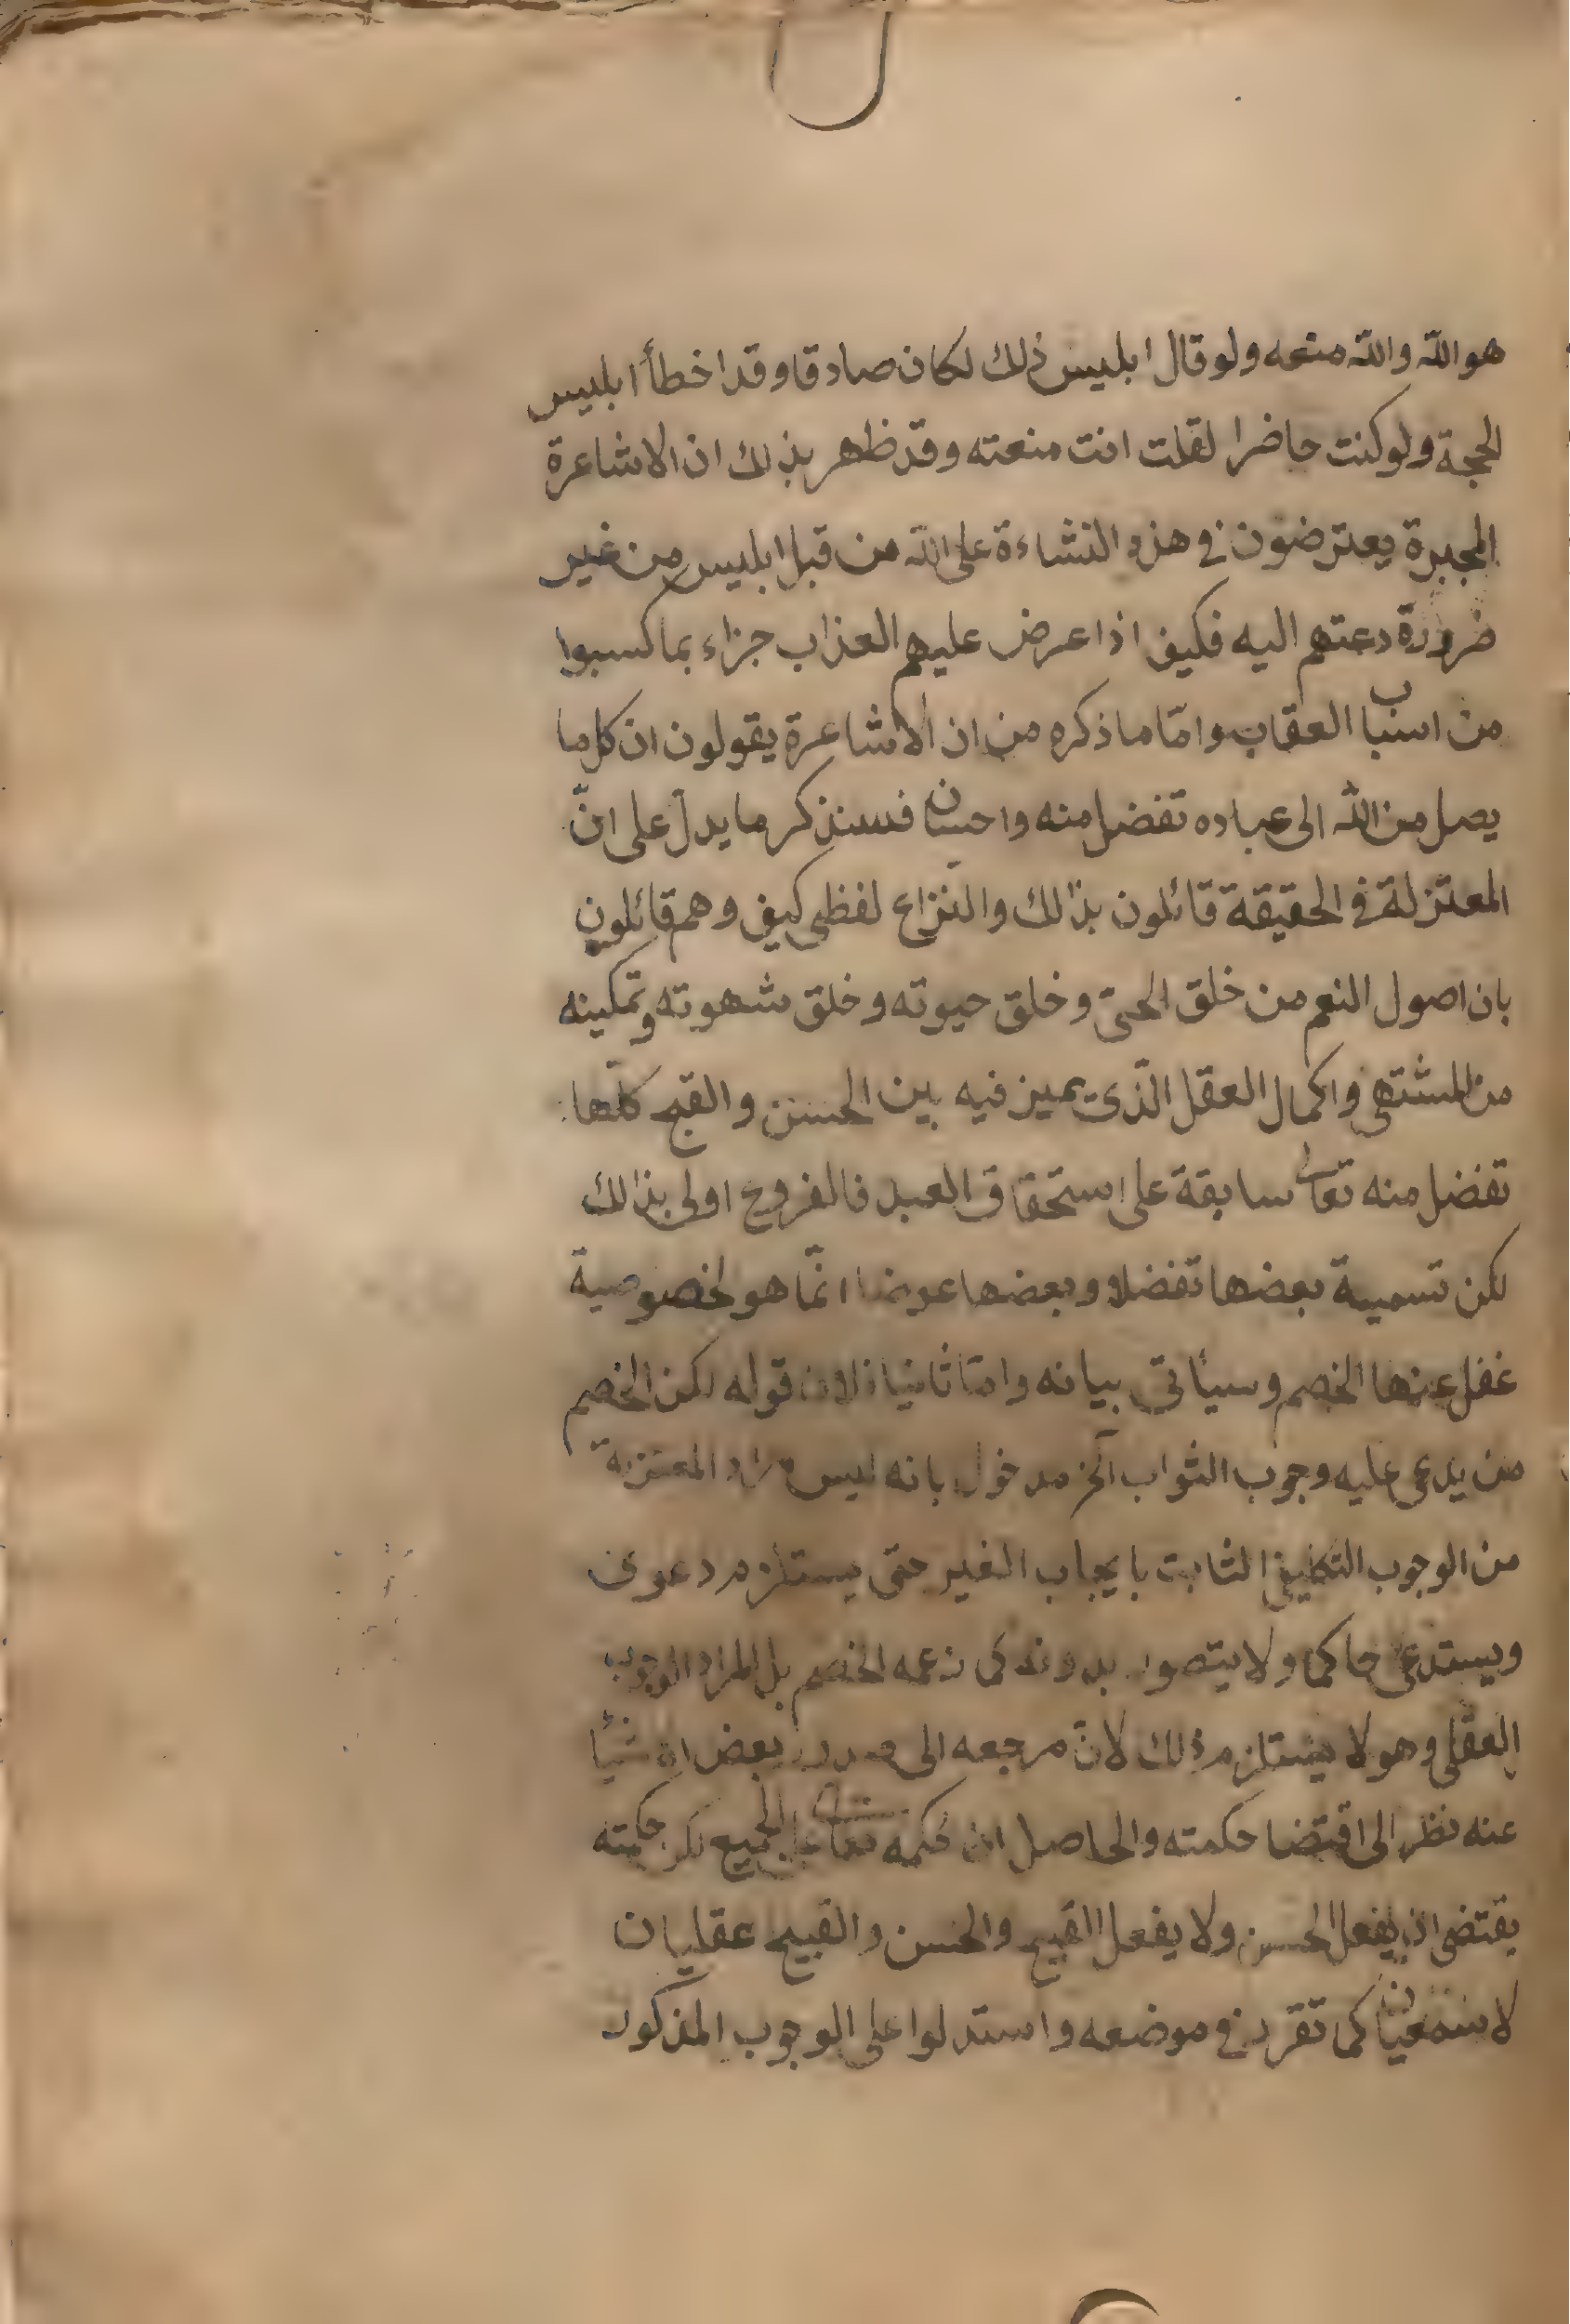 هو الله والله منعه ولو قال ابليس ذلك لكان صادقا وقد اخطأ ابليس
الحجة ولو كنت حاضرا لقلت انت منعته وقد ظهر بذلك ان الاشاعرة
المجبرة يعترضون في هذه النشاءة على الله من قبل ابليس من غير
ضرورة دعتهم اليه فكيف اذا عرض عليهم العذاب جزاء بما كسبوا
من اسباب العقاب واما ما ذكره من ان الاشاعرة يقولون ان كل ما
يصل من الله الى عباده تفضل منه واحسان فسنذكر ما يدلّ على انّ
المعتزلة في الحقيقة قائلون بذالك والنزاع لفظي كيف وهم قائلون
بان اصول النعم من خلق الحيّ وخلق حيوته وخلق شهوته وتمكينه
من المشتهى واكمال العقل الّذى يميز فيه بين الحسن والقبح كلّها
تفضل منه تعالى سابقة على استحقاق العبد فالفروع اولى بذالك
لكن تسمية بعضها تفضلا وبعضها عوضا انّما هو لخصوصية
غفل عنها الخصم وسيأتى بيانه وامّا ثانيا فلان قوله لكن الخصم
من يدعى عليه وجوب الثواب الخ مدخول بانه ليس مراد المعتزلة
من الوجوب التكليفى الثابت بايجاب الغير حتى يستلزم دعوى
ويستدعى حاكما ولا يتصور بدونه كما زعمه الخصم بل المراد الوجوب
العقلى وهو لا يستلزم ذلك لانّ مرجعه الى صدور بعض الاشيأ
عنه نظر الى اقتضا حكمته والحاصل ان حكمه تعالى على الجميع لكن حكمته
يقتضى ان يفعل الحسن ولا يفعل القبيح والحسن والقبيح عقليان
لا سمعيان كما تقرر في موضعه واستدلوا على الوجوب المذكور